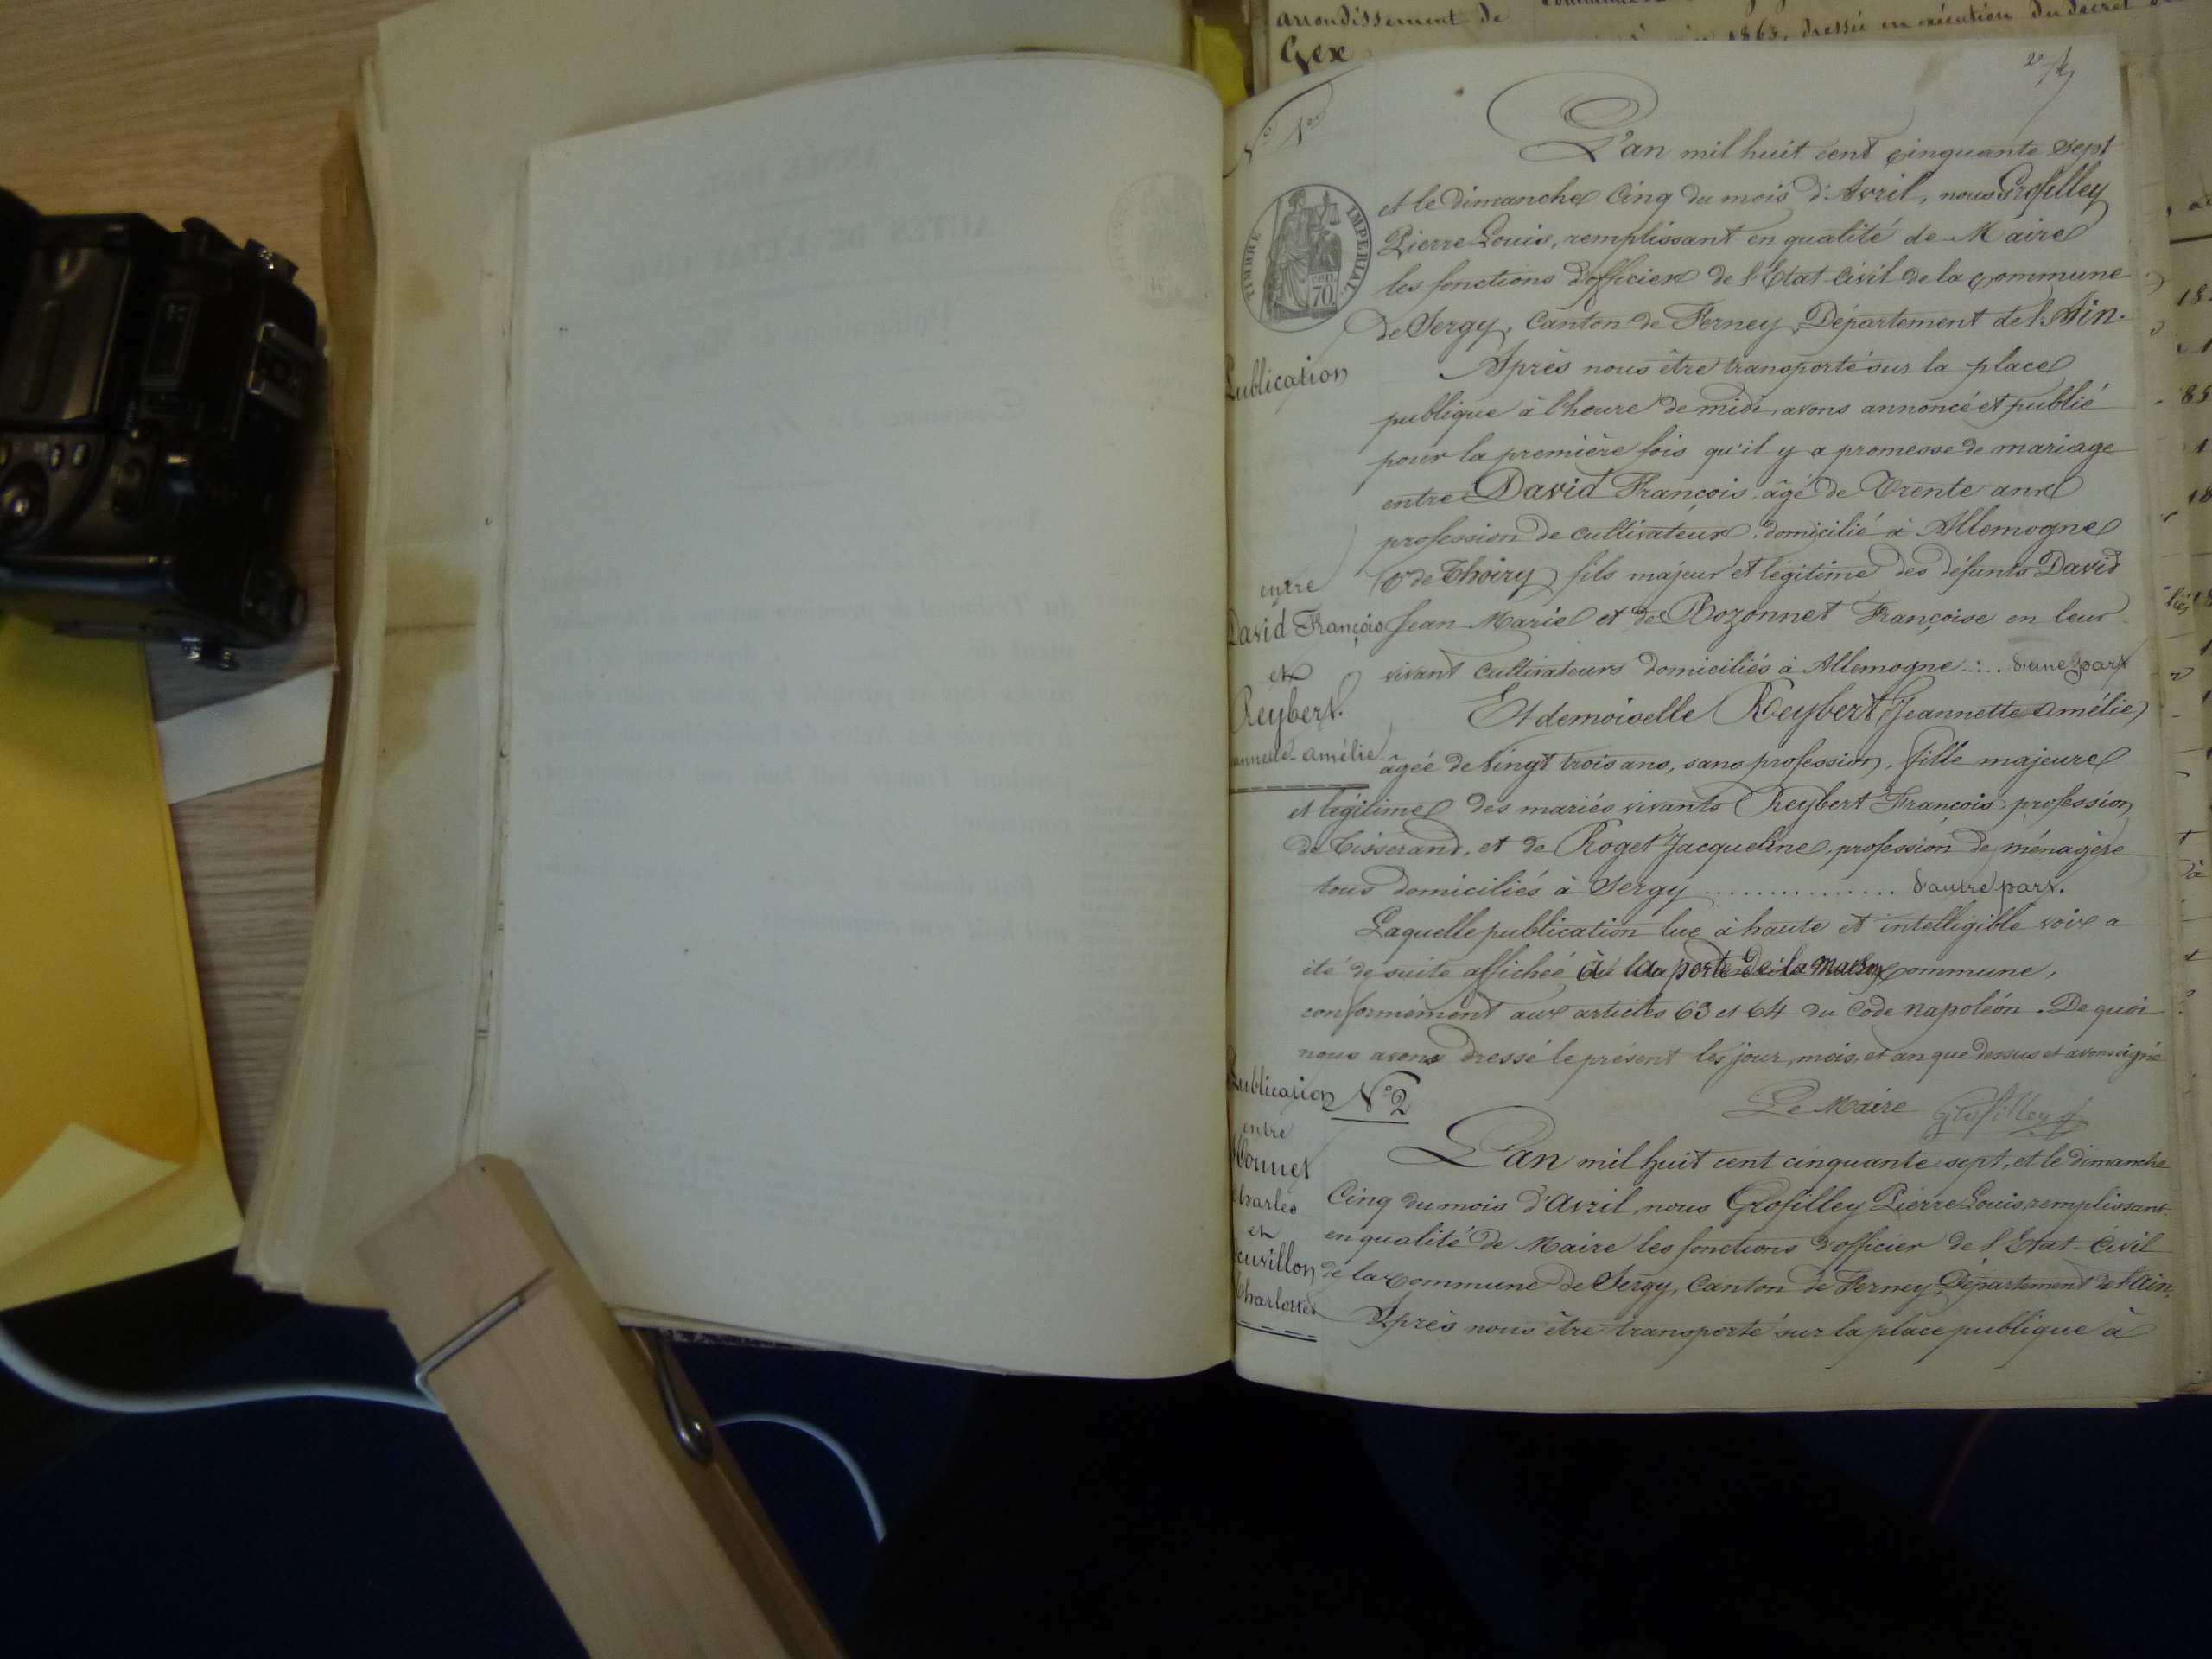 arrondissement de
Gex
1863, dressée en exécution du décret
N° 1er
L'an mil huit cent cinquante sept
et le dimanche Cinq du mois d'Avril, nous Grosfilley
Pierre Louis, remplissant en qualité de Maire
les fonctions d'officier de l'Etat-Civil de la commune
de Sergy, Canton de Ferney, Département de l'Ain.
TIMBRE IMPERIAL
CEN.
70
Publication
Après nous être transporté sur la place
publique à l'heure de midi, avons annoncé et publié
pour la première fois qu'il y a promesse de mariage
entre David François, âgé de Trente ans
profession de cultivateur, domicilié à Allemogne
de Thoiry, fils majeur et légitime des défunts David
Jean-Marie et de Bozonnet Françoise en leur
vivant cultivateurs domiciliés à Allemogne .... d'une part
entre
David François
et
Reybert
annette-amélie
Et demoiselle Reybert Jeannette amélie,
âgée de vingt trois ans, sans profession, fille majeure
et légitime des mariés vivants Reybert François, profession
de Tisserand, et de Roget Jacqueline, profession de ménagère
tous domiciliés à Sergy ............... d'autre part.
Laquelle publication lue à haute et intelligible voix a
été de suite affichée à la porte de la maison commune,
conformément aux articles 63 et 64 du Code napoléon. De quoi
nous avons dressé le présent les jour, mois, et an que dessus et avons signé
Le Maire Grosfilley
Publication
entre
Charles
et
Charlotte
N° 2
L'an mil huit cent cinquante sept, et le dimanche
Cinq du mois d'Avril, nous Grosfilley Pierre Louis, remplissant
en qualité de Maire les fonctions d'officier de l'Etat-Civil
de la commune de Sergy, Canton de Ferney, Département de l'Ain,
Après nous être transporté sur la place publique à